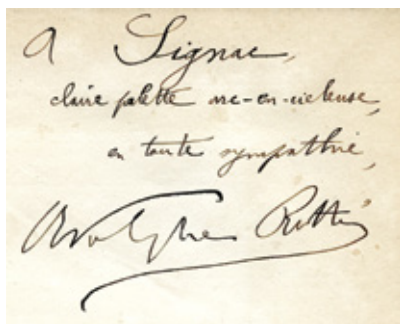 A Signac,
claire palette arc-en-cieleuse,
en toute sympathie,
Adolphe Retté